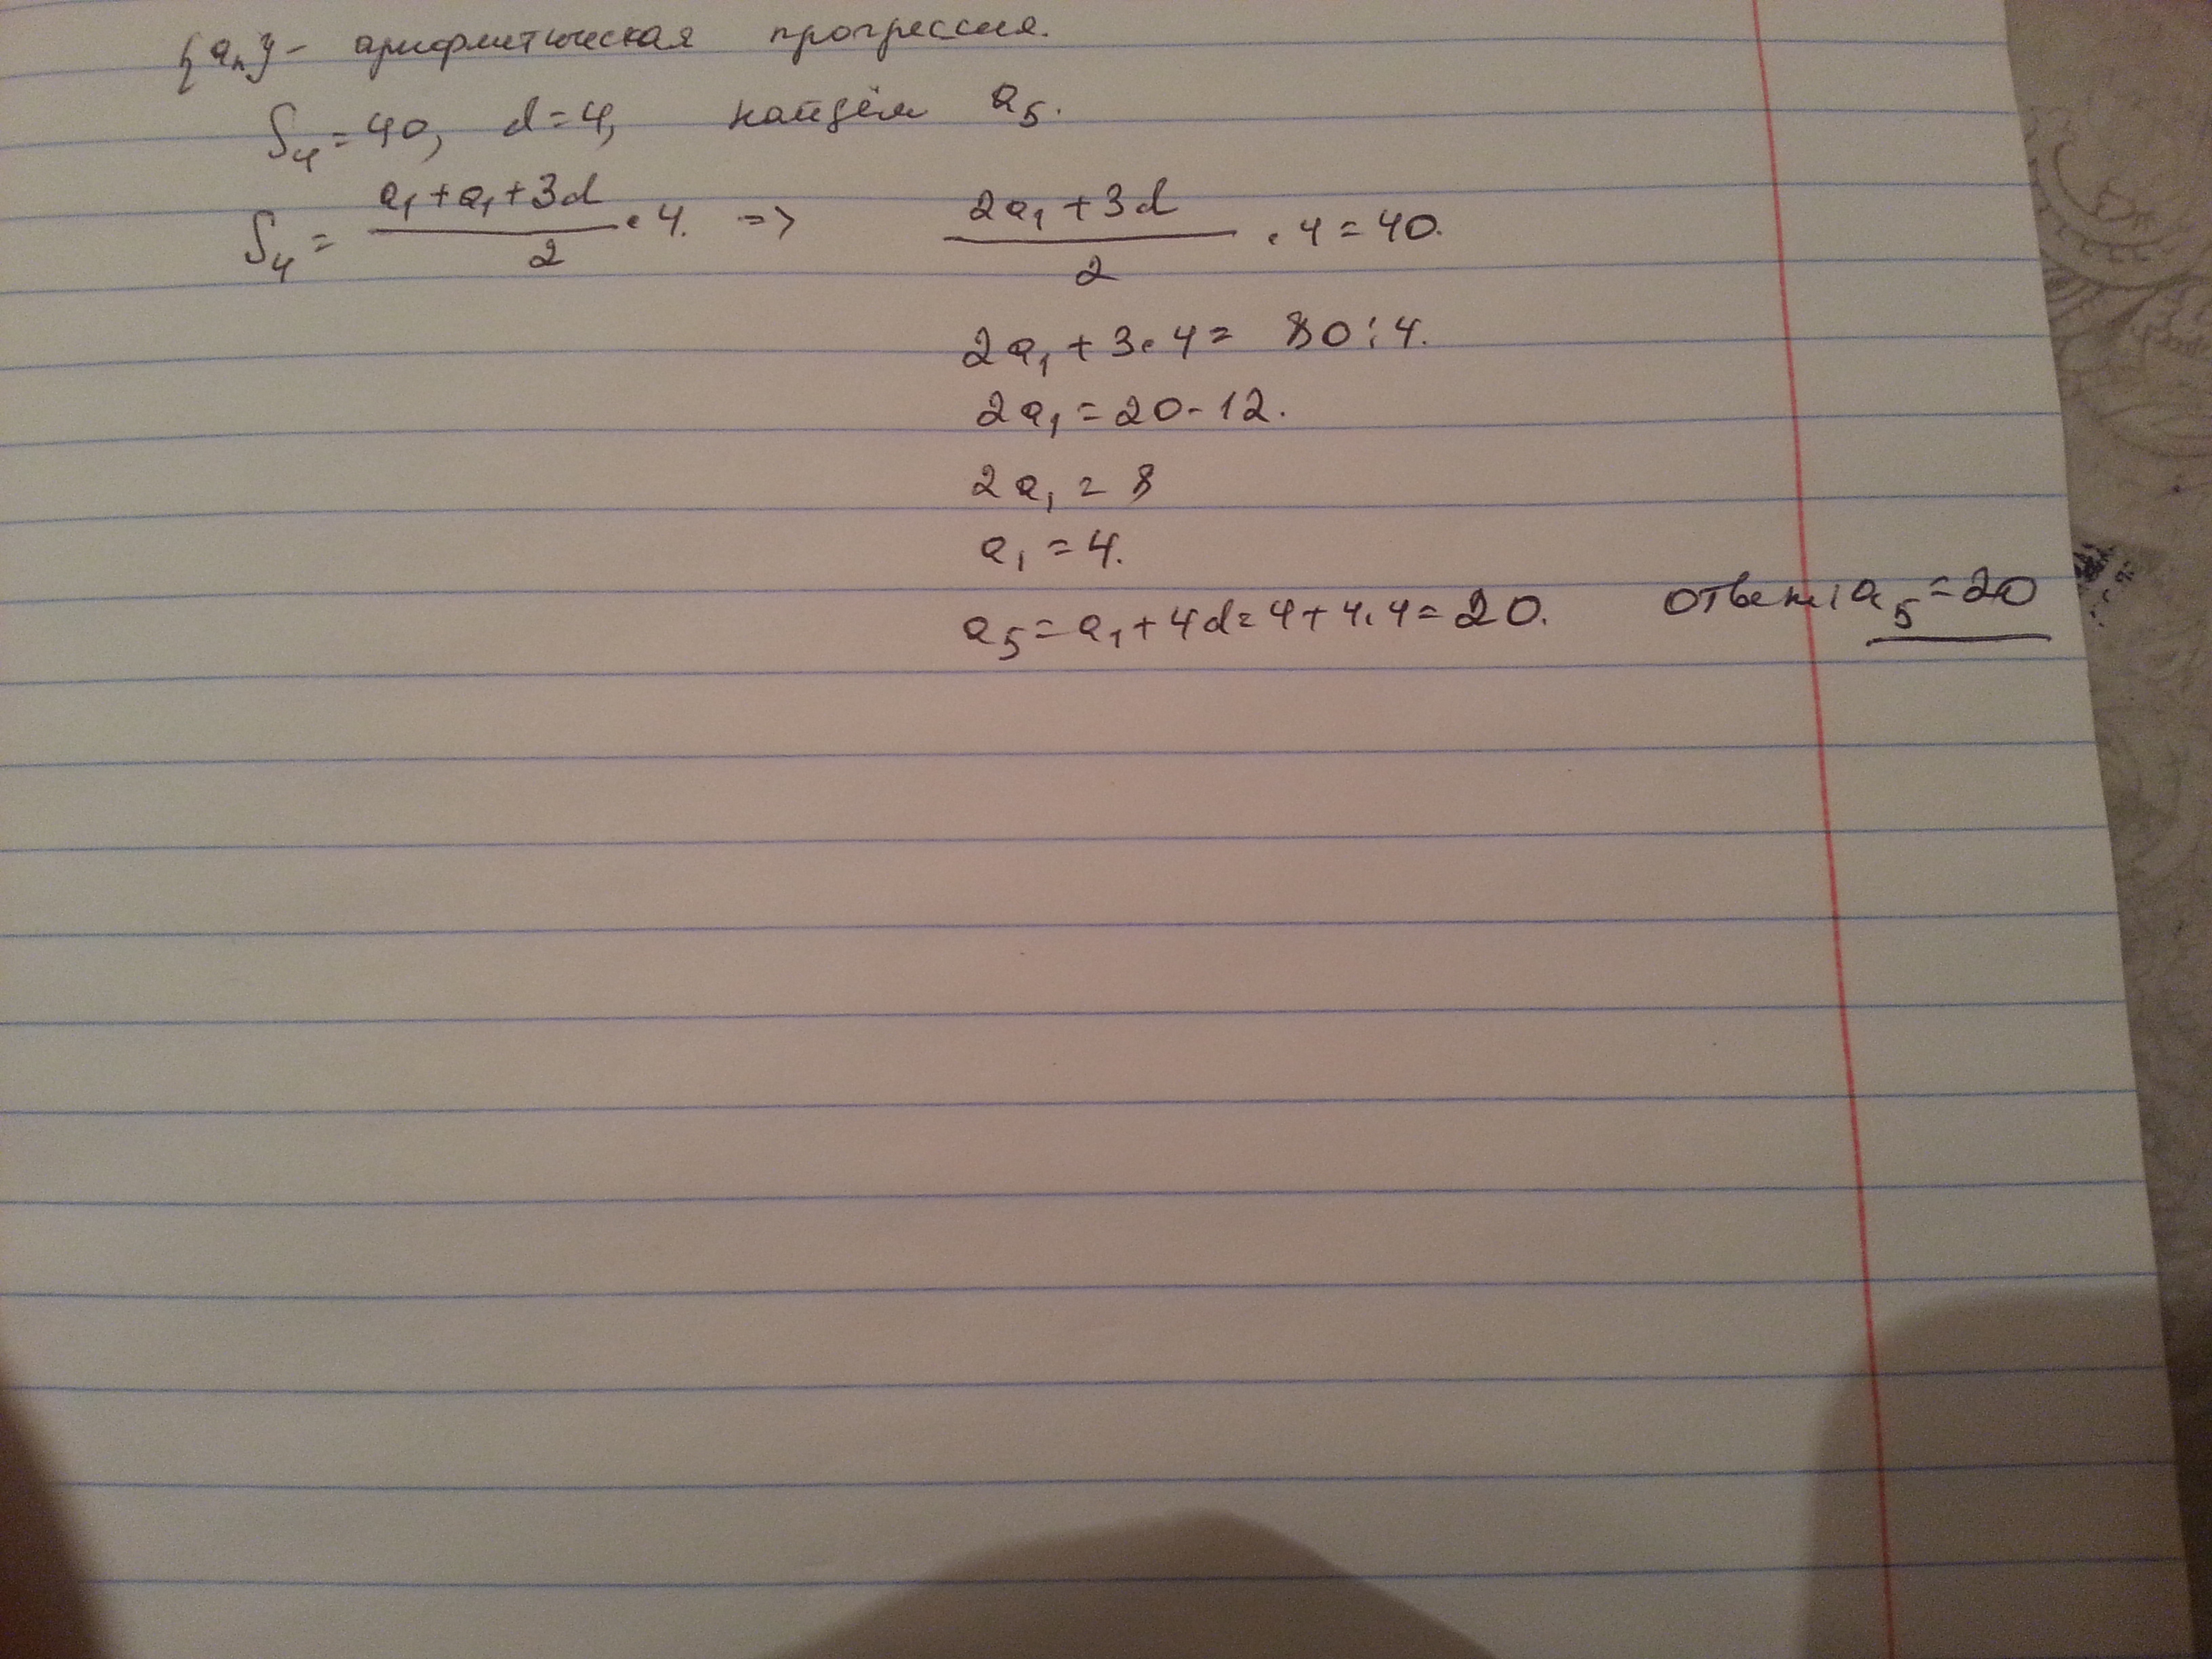 {aₙ} - арифметическая прогрессия.
S₄ = 40, d = 4, найдём a₅.
S₄ = (a₁ + a₁ + 3d)/2 · 4. => (2a₁ + 3d)/2 · 4 = 40.
2a₁ + 3·4 = 80 : 4.
2a₁ = 20 - 12.
2a₁ = 8
a₁ = 4.
a₅ = a₁ + 4d = 4 + 4·4 = 20. ответ: a₅ = 20